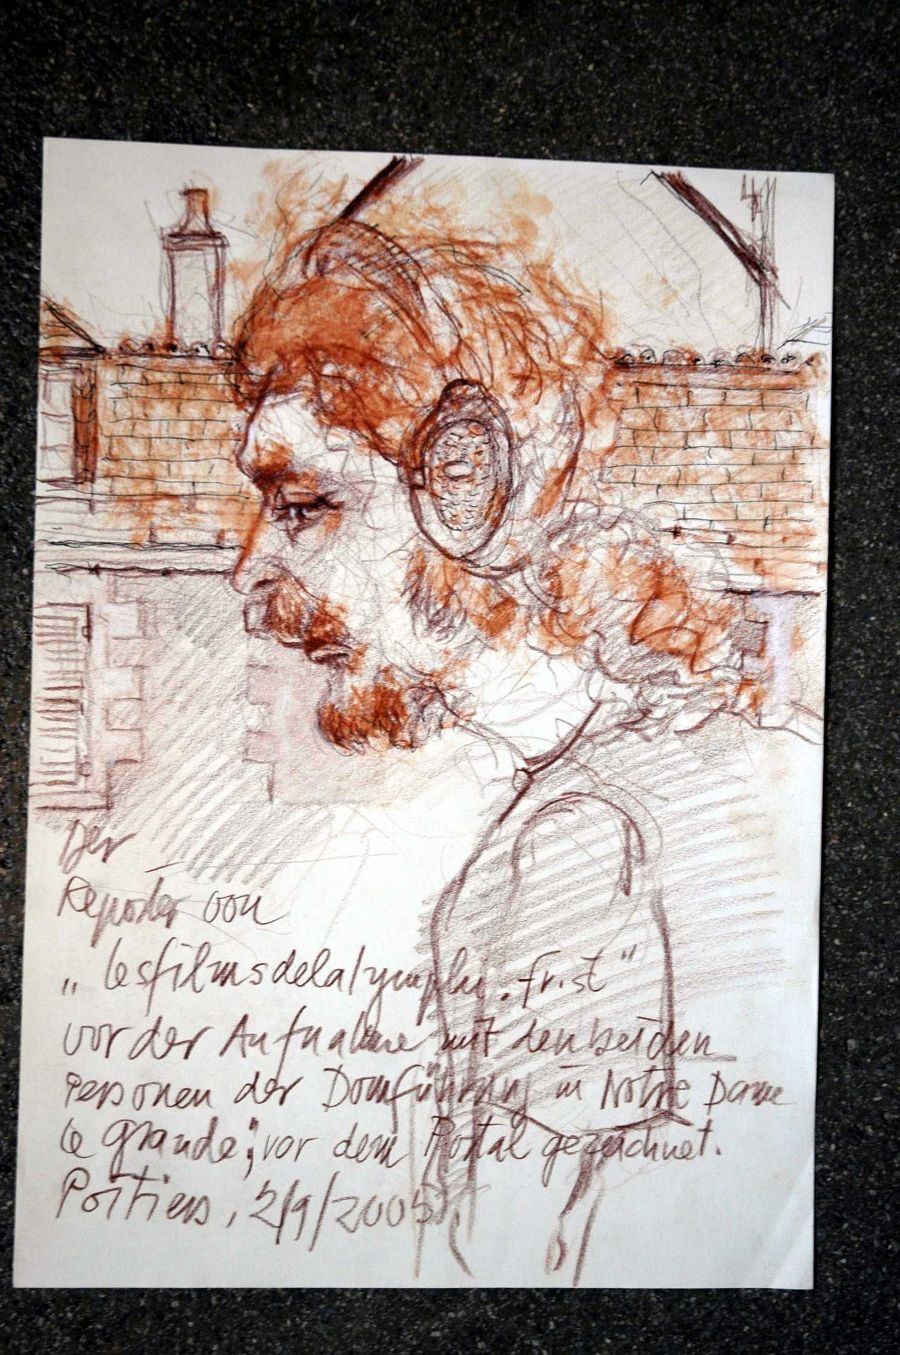 Der
Reporter von
„lesfilmsdelalymphe.fr.st“
vor der Aufnahme mit den beiden
Personen der Domführung in Notre Dame
le Grande; vor dem Portal gezeichnet.
Poitiers, 2/9/2005.